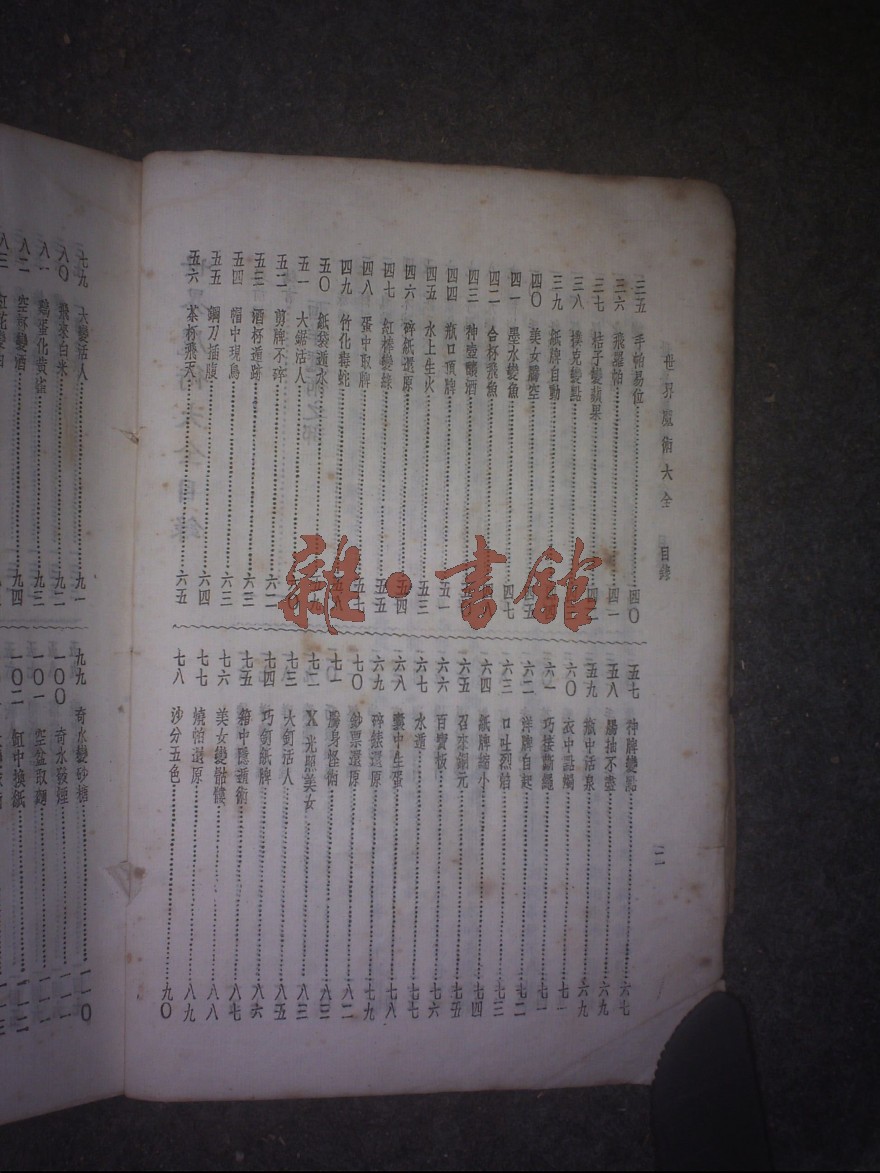 世界魔術大全 目錄 二
三五 手帕易位 四〇
三六 飛羅帕 四一
三七 桔子變蘋果
三八 撲克變點
三九 紙牌自動
四〇 美女騰空
四一 墨水變魚 四七
四二 合杯飛魚
四三 神壺釀酒
四四 瓶口頂牌 五一
四五 水上生火 五三
四六 碎紙還原 五四
四七 紅棒變綠 五五
四八 蛋中取牌 五七
四九 竹化毒蛇 五八
五〇 紙袋遁水
五一 大鋸活人
五二 剪牌不碎 六一
五三 酒杯遁跡 六二
五四 帽中現鳥 六三
五五 鋼刀插腹 六四
五六 茶杯飛天 六五
五七 神牌變點 六七
五八 腸抽不盡 六九
五九 瓶中活泉 六九
六〇 衣中點燭 七一
六一 巧接斷繩 七一
六二 洋牌自起 七二
六三 口吐烈焰 七三
六四 紙牌縮小 七四
六五 召來銀元 七五
六六 百寶板 七六
六七 水遁 七七
六八 囊中生蛋 七八
六九 碎錶還原 七九
七〇 鈔票還原 八二
七一 腸身怪術 八三
七二 X光照美女 八三
七三 火釘活人 八五
七四 巧釘紙牌 八六
七五 箱中隱遁術 八七
七六 美女變骷髏 八八
七七 燒帕還原 八九
七八 沙分五色 九〇
七九 大變活人 九一
八〇 飛來白米 九二
八一 鷄蛋化黃雀 九三
八二 空壺變酒 九四
八三
九九 奇水變砂糖 一一〇
一〇〇 奇水發煙 一一一
一〇一 空盆取麵 一一一
一〇二 缸中換紙 一一二
雜·書館